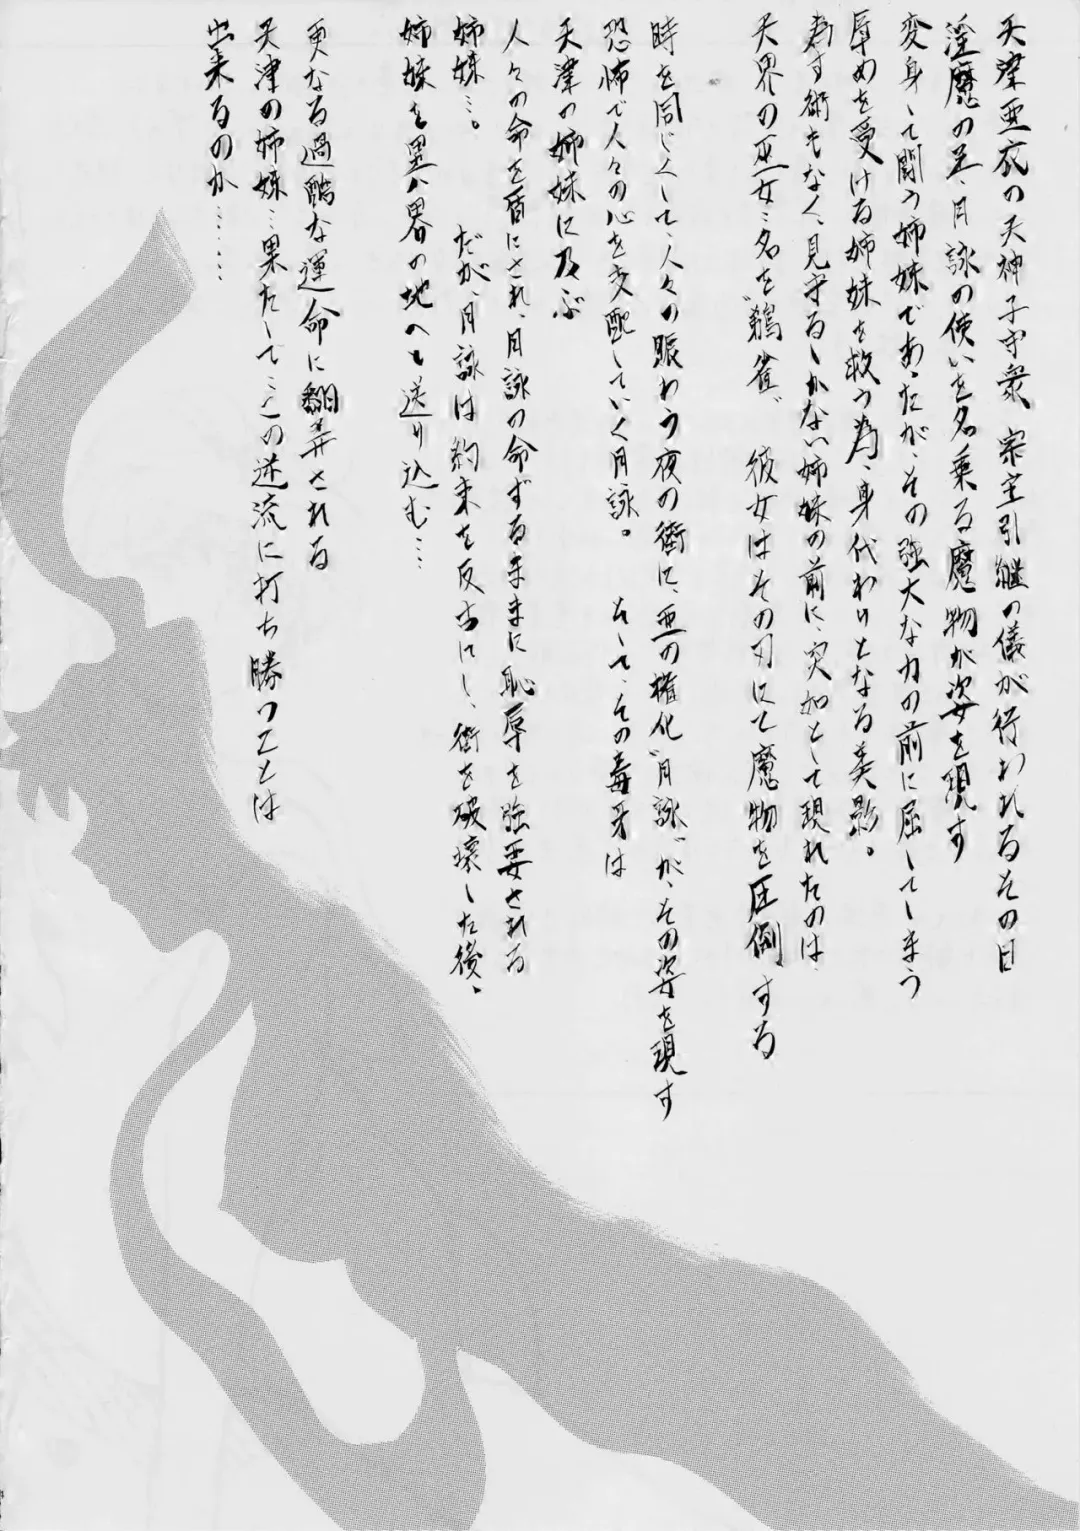 天津亜衣の天神子守衆、宗主引継の儀が行われるその日
淫魔の足、月詠の使いを名乗る魔物が姿を現す
変身して闘う姉妹であったが、その強大な力の前に屈してしまう
辱めを受ける姉妹を救う為、身代わりとなる美影。
為す術もなく、見守るしかない姉妹の前に、突如として現れたのは
天界の巫女…名を〝鶺雀〟 彼女はその刃にて魔物を圧倒する
時を同じくして、人々の賑わう夜の街に、亜の権化〝月詠〟が、その姿を現す
恐怖で人々の心を支配していく月詠。 そして、その毒牙は
天津の姉妹に及ぶ
人々の命を盾にされ、月詠の命ずるままに恥辱を強要される
姉妹…。 だが、月詠は約束を反古にし、街を破壊した後、
姉妹を異界の地へと送り込む…
更なる過酷な運命に翻弄される
天津の姉妹…果たして…この逆流に打ち勝つことは
出来るのか……